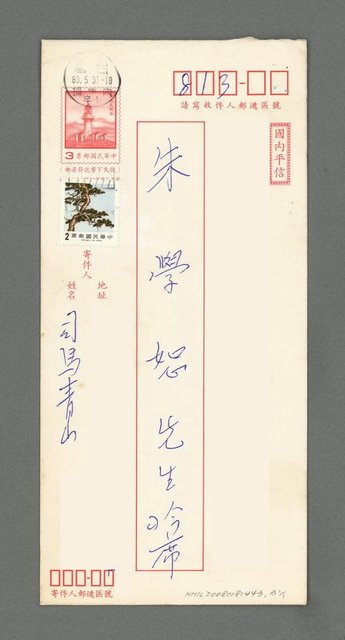 813
請寫收件人郵遞區號
國內平信
朱學恕先生吟席
83.5.31.18
3
中華民國郵票
2
中華民國郵票
寄件人
地址
姓名
司馬青山
寄件人郵遞區號
NMTL20080181443